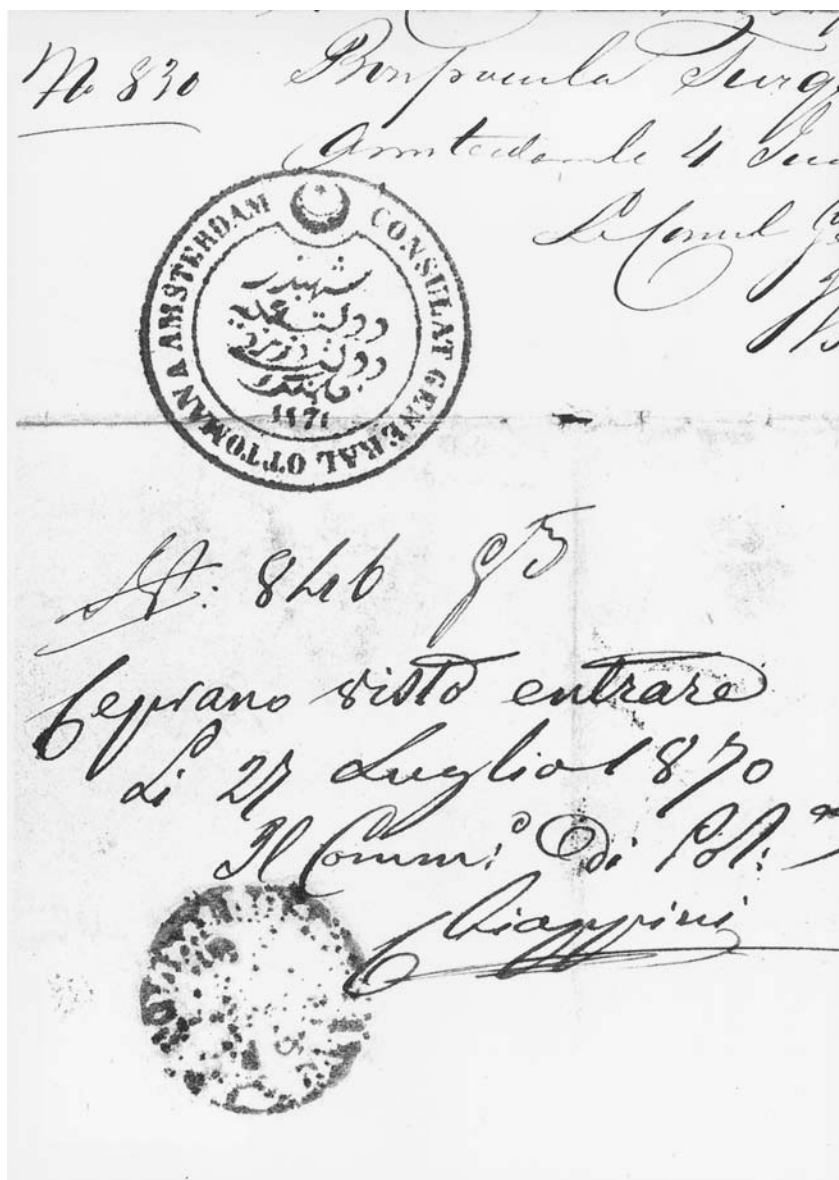 No 830
Bon pour la Turq
Amsterdam le 4 Jui
Le Consul G
CONSULAT GENERAL OTTOMAN A AMSTERDAM
شهبندر
دولت
1871
No: 846
Ceprano visto entrare
Li 27 Luglio 1870
Il Comm.o di Pol:
Chiappini